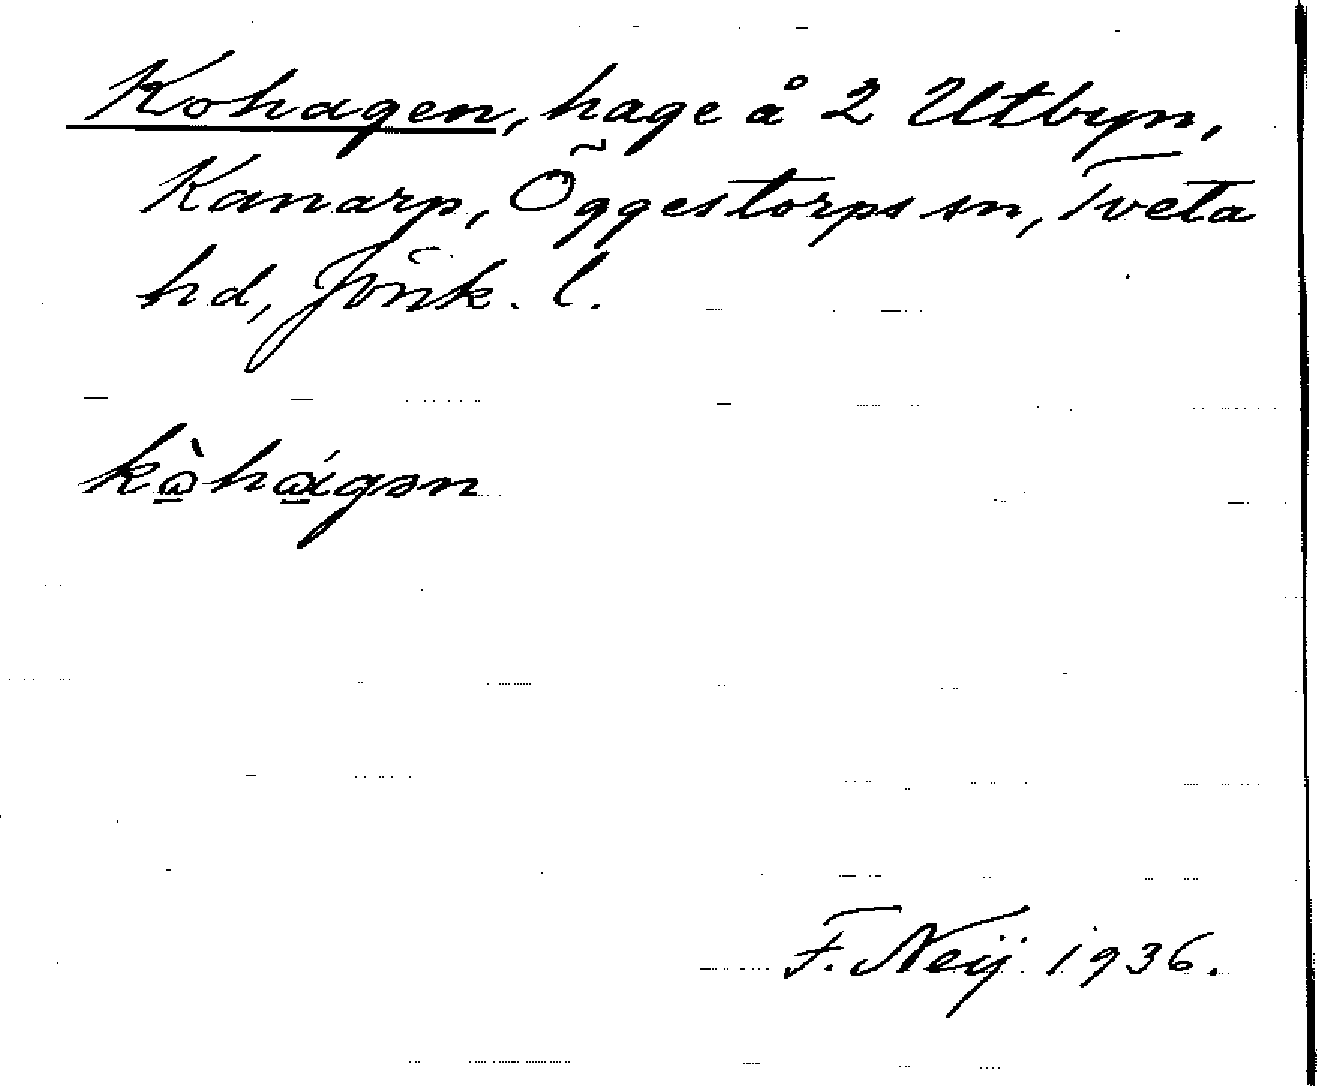 Kohagen, hage å 2 Utbyn,
Kanarp, Öggestorps sn, Tveta
hd, Jönk. l.
kòhágən
F. Neij 1936.